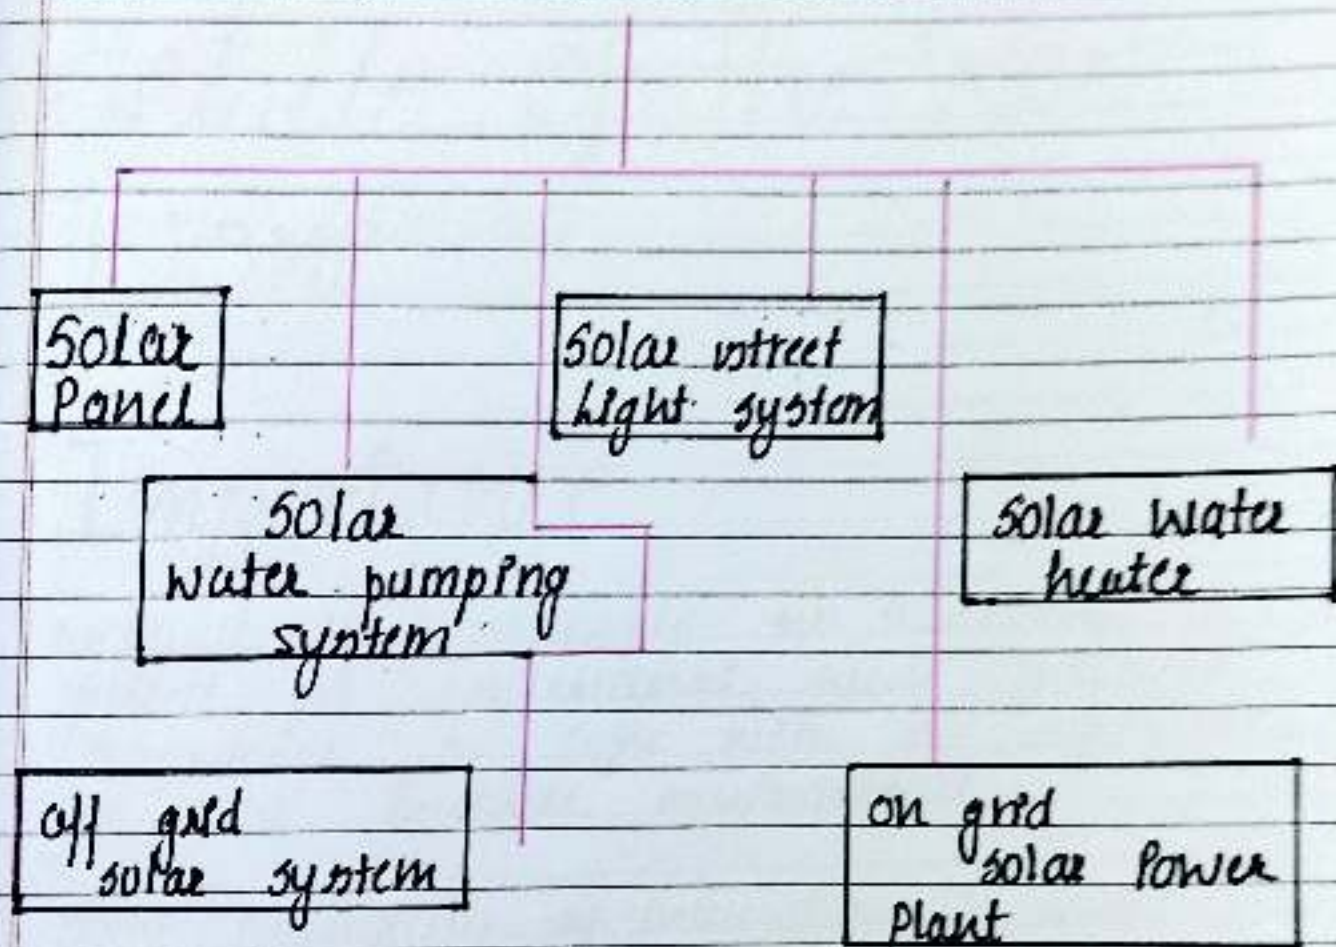 Solar
Panel
Solar street
Light system
Solar
water pumping
system
Solar Water
heater
off grid
solar system
on grid
solar Power
Plant